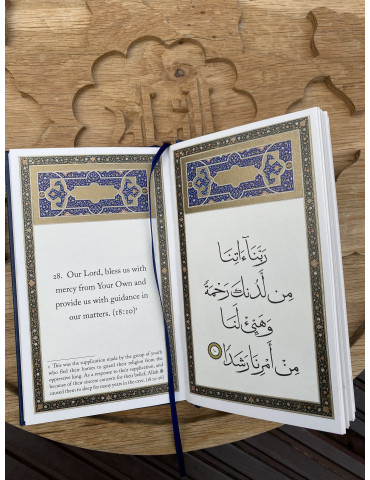 28. Our Lord, bless us with
mercy from Your Own and
provide us with guidance in
our matters. (18:10)¹
1 This was the supplication made by the group of youth
who fled their homes to guard their religion from the
oppressive king. As a response to their supplication, and
because of their sincere concern for their belief, Allah ﷻ
caused them to sleep for many years in the cave. (18:
رَبَّنَآ ءَاتِنَا
مِن لَّدُنكَ رَحْمَةً
وَهَيِّئْ لَنَا
مِنْ أَمْرِنَا رَشَدًا